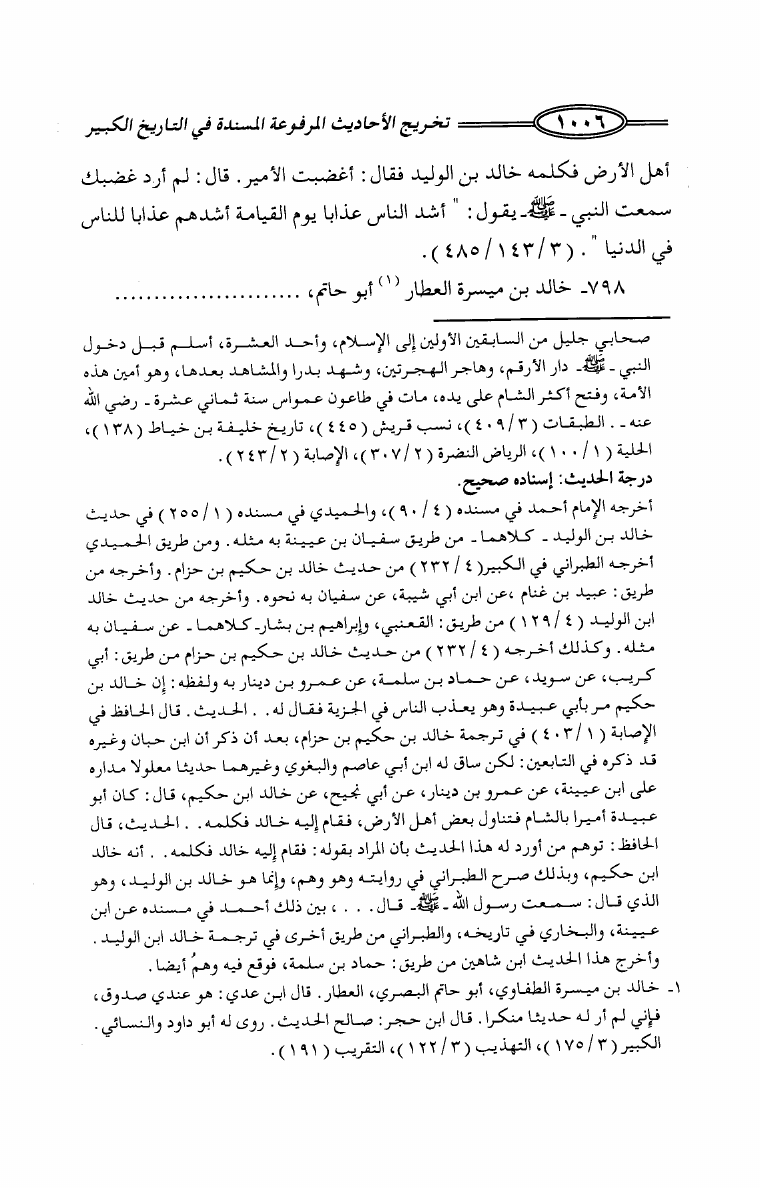 ١٠٠٦ تخريج الأحاديث المرفوعة المسندة في التاريخ الكبير
أهل الأرض فكلمه خالد بن الوليد فقال: أغضبت الأمير. قال: لم أرد غضبك
سمعت النبي ـ ﷺ ـ يقول: " أشد الناس عذابا يوم القيامة أشدهم عذابا للناس
في الدنيا ". (٤٨٥/١٤٣/٣).
٧٩٨ـ خالد بن ميسرة العطار (١) أبو حاتم، ........................
صحابي جليل من السابقين الأولين إلى الإسلام، وأحد العشرة، أسلم قبل دخول
النبي ـ ﷺ ـ دار الأرقم، وهاجر الهجرتين، وشهد بدرا والمشاهد بعدها، وهو أمين هذه
الأمة، وفتح أكثر الشام على يده، مات في طاعون عمواس سنة ثماني عشرة ـ رضي الله
عنه ـ. الطبقات (٤٠٩/٣)، نسب قريش (٤٤٥)، تاريخ خليفة بن خياط (١٣٨)،
الحلية (١٠٠/١)، الرياض النضرة (٣٠٧/٢)، الإصابة (٢٤٣/٢).
درجة الحديث: إسناده صحيح.
أخرجه الإمام أحمد في مسنده (٩٠/٤)، والحميدي في مسنده (٢٥٥/١) في حديث
خالد بن الوليد ـ كلاهما ـ من طريق سفيان بن عيينة به مثله. ومن طريق الحميدي
أخرجه الطبراني في الكبير(٢٣٢/٤) من حديث خالد بن حكيم بن حزام. وأخرجه من
طريق: عبيد بن غنام ،عن ابن أبي شيبة، عن سفيان به نحوه. وأخرجه من حديث خالد
ابن الوليد (١٢٩/٤) من طريق: القعنبي، وإبراهيم بن بشارـ كلاهما ـ عن سفيان به
مثله. وكذلك أخرجه (٢٣٢/٤) من حديث خالد بن حكيم بن حزام من طريق: أبي
كريب، عن سويد، عن حماد بن سلمة، عن عمرو بن دينار به ولفظه: إن خالد بن
حكيم مر بأبي عبيدة وهو يعذب الناس في الجزية فقال له. . الحديث. قال الحافظ في
الإصابة (٤٠٣/١) في ترجمة خالد بن حكيم بن حزام، بعد أن ذكر أن ابن حبان وغيره
قد ذكره في التابعين: لكن ساق له ابن أبي عاصم والبغوي وغيرهما حديثا معلولا مداره
على ابن عيينة، عن عمرو بن دينار، عن أبي نجيح، عن خالد ابن حكيم، قال: كان أبو
عبيدة أميرا بالشام فتناول بعض أهل الأرض، فقام إليه خالد فكلمه. . الحديث، قال
الحافظ: توهم من أورد له هذا الحديث بأن المراد بقوله: فقام إليه خالد فكلمه. . أنه خالد
ابن حكيم، وبذلك صرح الطبراني في روايته وهو وهم، وإنما هو خالد بن الوليد، وهو
الذي قال: سمعت رسول الله ـ ﷺ ـ قال. . . ، بين ذلك أحمد في مسنده عن ابن
عيينة، والبخاري في تاريخه، والطبراني من طريق أخرى في ترجمة خالد ابن الوليد.
وأخرج هذا الحديث ابن شاهين من طريق: حماد بن سلمة، فوقع فيه وهمُ أيضا.
١ـ خالد بن ميسرة الطفاوي، أبو حاتم البصري، العطار. قال ابن عدي: هو عندي صدوق،
فإني لم أر له حديثا منكرا. قال ابن حجر: صالح الحديث. روى له أبو داود والنسائي.
الكبير (١٧٥/٣)، التهذيب (١٢٢/٣)، التقريب (١٩١).